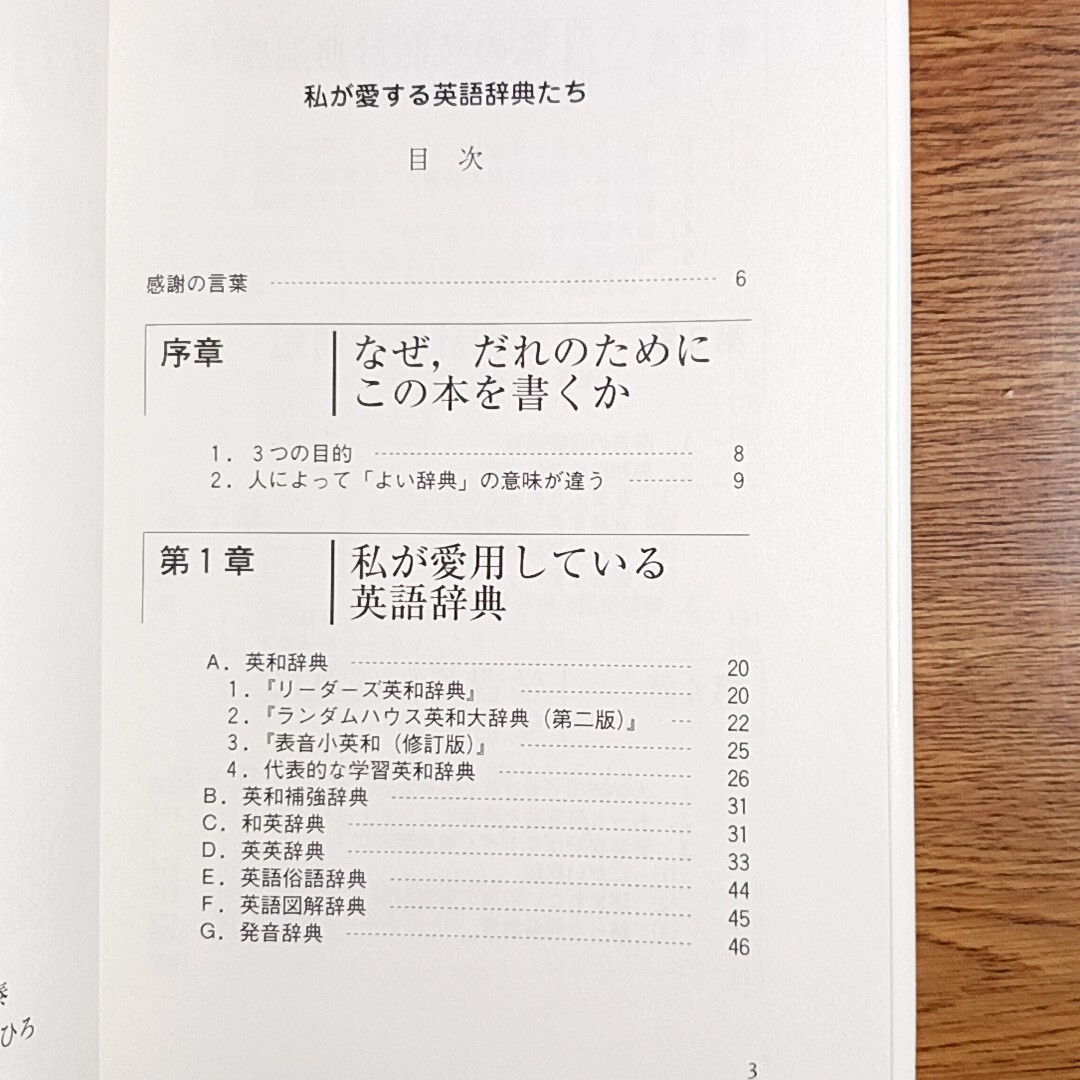 私が愛する英語辞典たち
目 次
感謝の言葉 6
序章
なぜ，だれのために
この本を書くか
1．3つの目的 8
2．人によって「よい辞典」の意味が違う 9
第1章
私が愛用している
英語辞典
A．英和辞典 20
1．『リーダーズ英和辞典』 20
2．『ランダムハウス英和大辞典（第二版）』 22
3．『表音小英和（修訂版）』 25
4．代表的な学習英和辞典 26
B．英和補強辞典 31
C．和英辞典 31
D．英英辞典 33
E．英語俗語辞典 44
F．英語図解辞典 45
G．発音辞典 46
3
ひろ